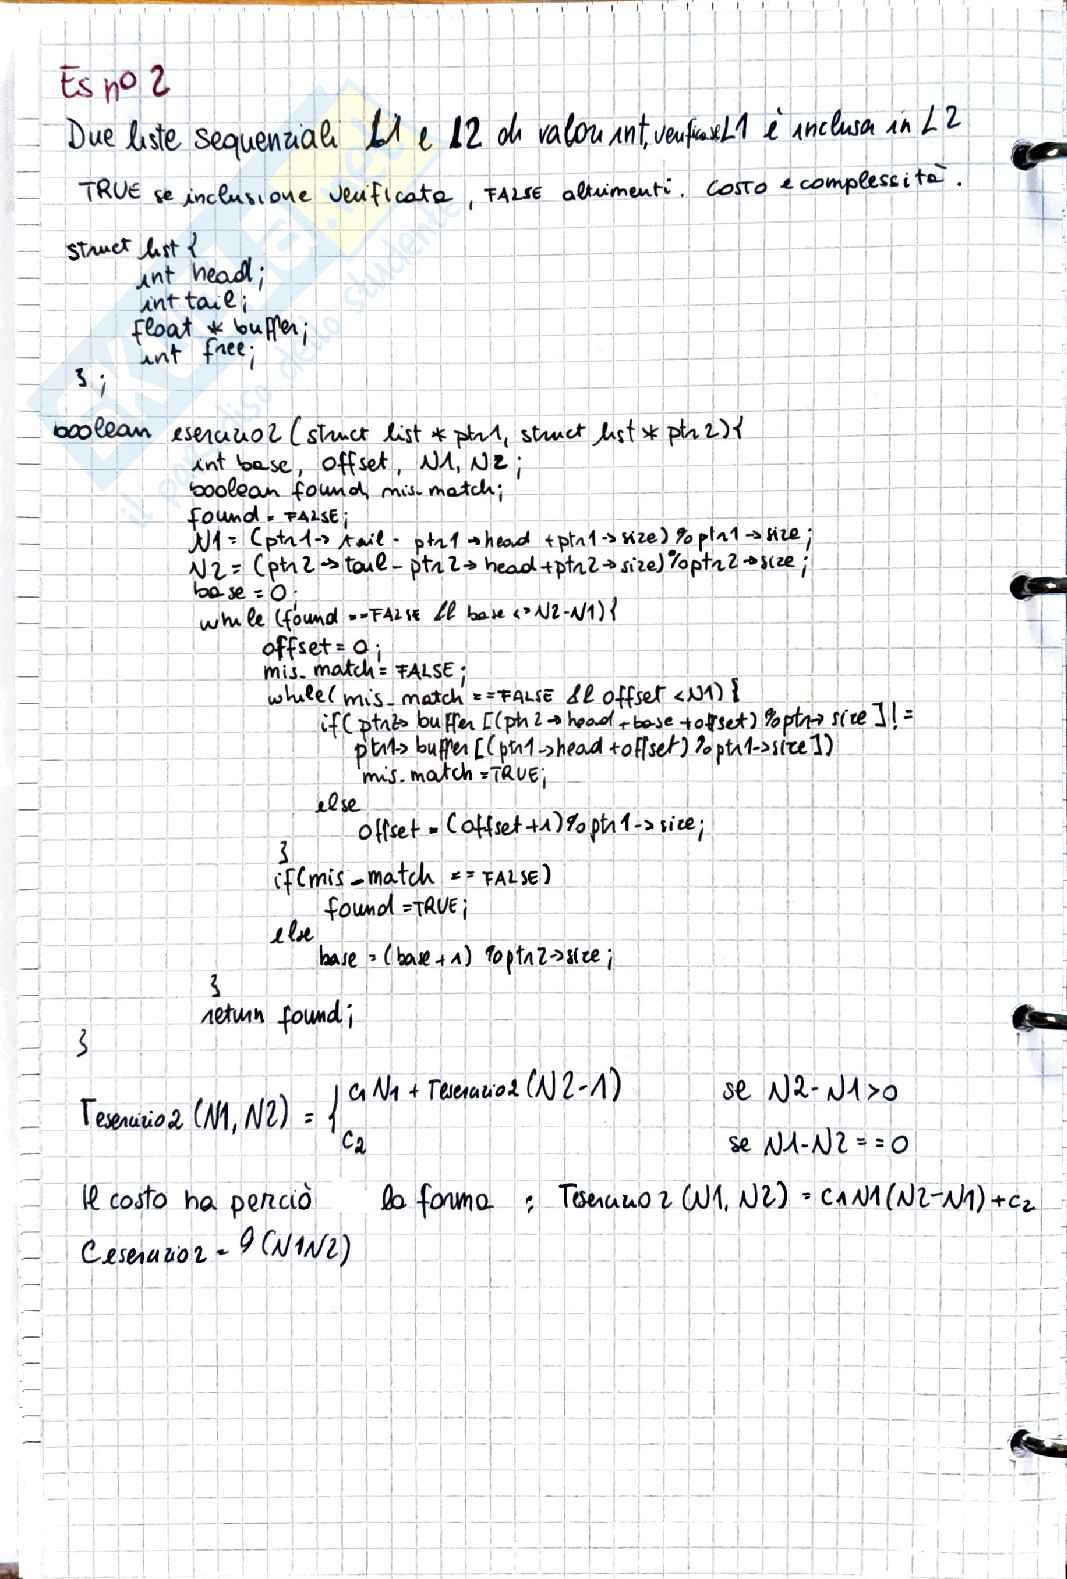 Es n° 2
Due liste sequenziali L1 e L2 di valori int, verificase L1 è inclusa in L2
TRUE se inclusione verificata, FALSE altrimenti. Costo e complessità.
struct list {
int head;
int tail;
float * buffer;
int free;
};
boolean esercizio2 (struct list * ptr1, struct list * ptr2){
int base, offset, N1, N2;
boolean found, mis_match;
found = FALSE;
N1 = (ptr1-> tail - ptr1->head +ptr1->size) %ptr1->size;
N2 = (ptr2->tail - ptr2->head+ptr2->size)%ptr2->size;
base = 0;
while (found ==FALSE && base <= N2-N1){
offset= 0;
mis_match= FALSE;
while( mis_match ==FALSE && offset <N1) {
if( ptr2-> buffer [(ptr2->head+base+offset) %ptr-> size ] !=
ptr1-> buffer [(ptr1->head+offset) %ptr1->size])
mis_match =TRUE;
else
offset = (offset+1)%ptr1->size;
}
if(mis_match == FALSE)
found =TRUE;
else
base = (base+1) %ptr2->size;
}
return found;
}
Tesercizio2 (N1, N2) = { c1 N1 + Tesercizio2 (N2-1) se N2-N1>0
c2 se N1-N2 ==0
Il costo ha perciò la forma : Tesercizio2 (N1, N2) = c1N1(N2-N1)+c2
Cesercizio2 = θ(N1N2)
il paradiso dello studente